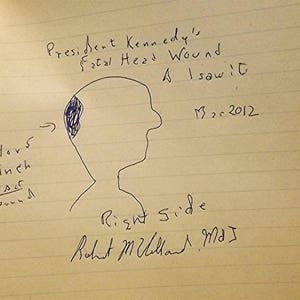 President Kennedy's
Fatal Head Wound
A I saw it
Dec 2012
inch
Right side
Robert McClelland, MD